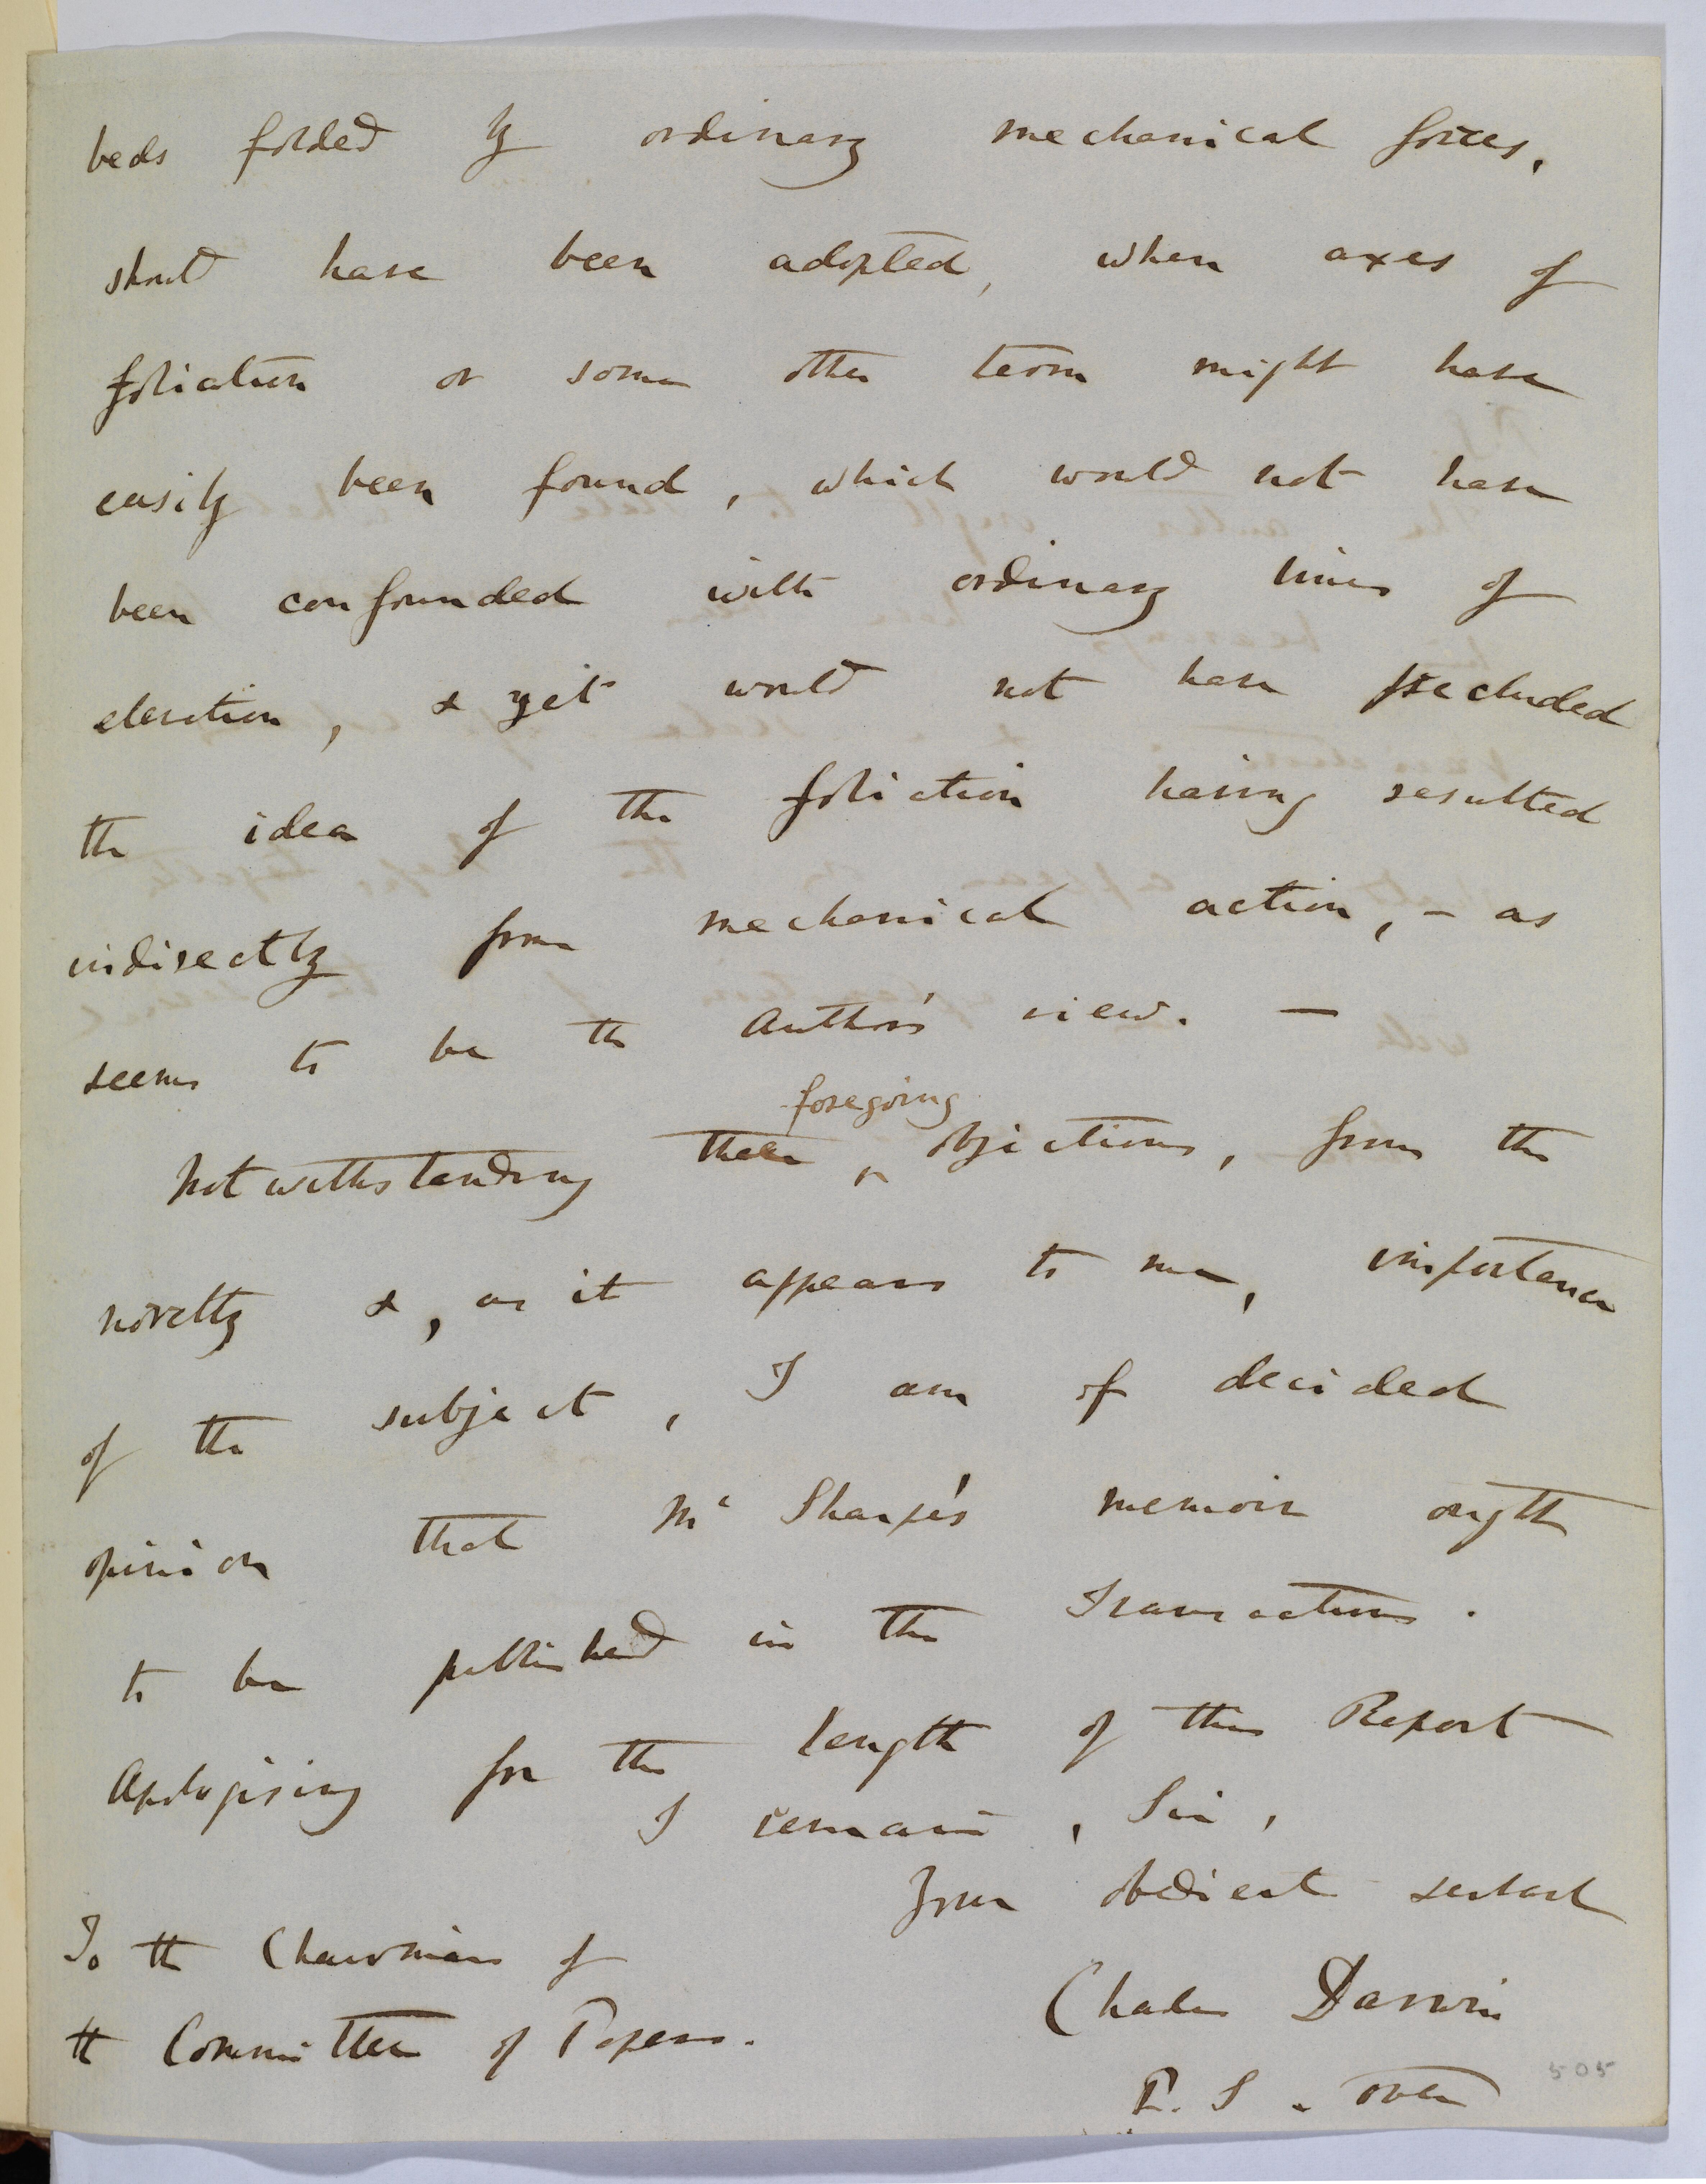 beds folded by ordinary mechanical forces,
should have been adopted, when axes of
foliation or some other term might have
easily been found, which would not have
been confounded with ordinary lines of
elevation, & yet would not have precluded
the idea of the foliation having resulted
indirectly from mechanical action, — as
seems to be the Author's view. —
foregoing
Notwithstanding these ^ objections, from the
novelty &, as it appears to me, importance
of the subject, I am of decided
opinion that Mr Sharpe's memoir ought
to be published in the Transactions.
Apologising for the length of this Report
I remain, Sir,
Your obedient servant
To the Chairman of
Charles Darwin
the Committee of Papers.
P.S. over
505